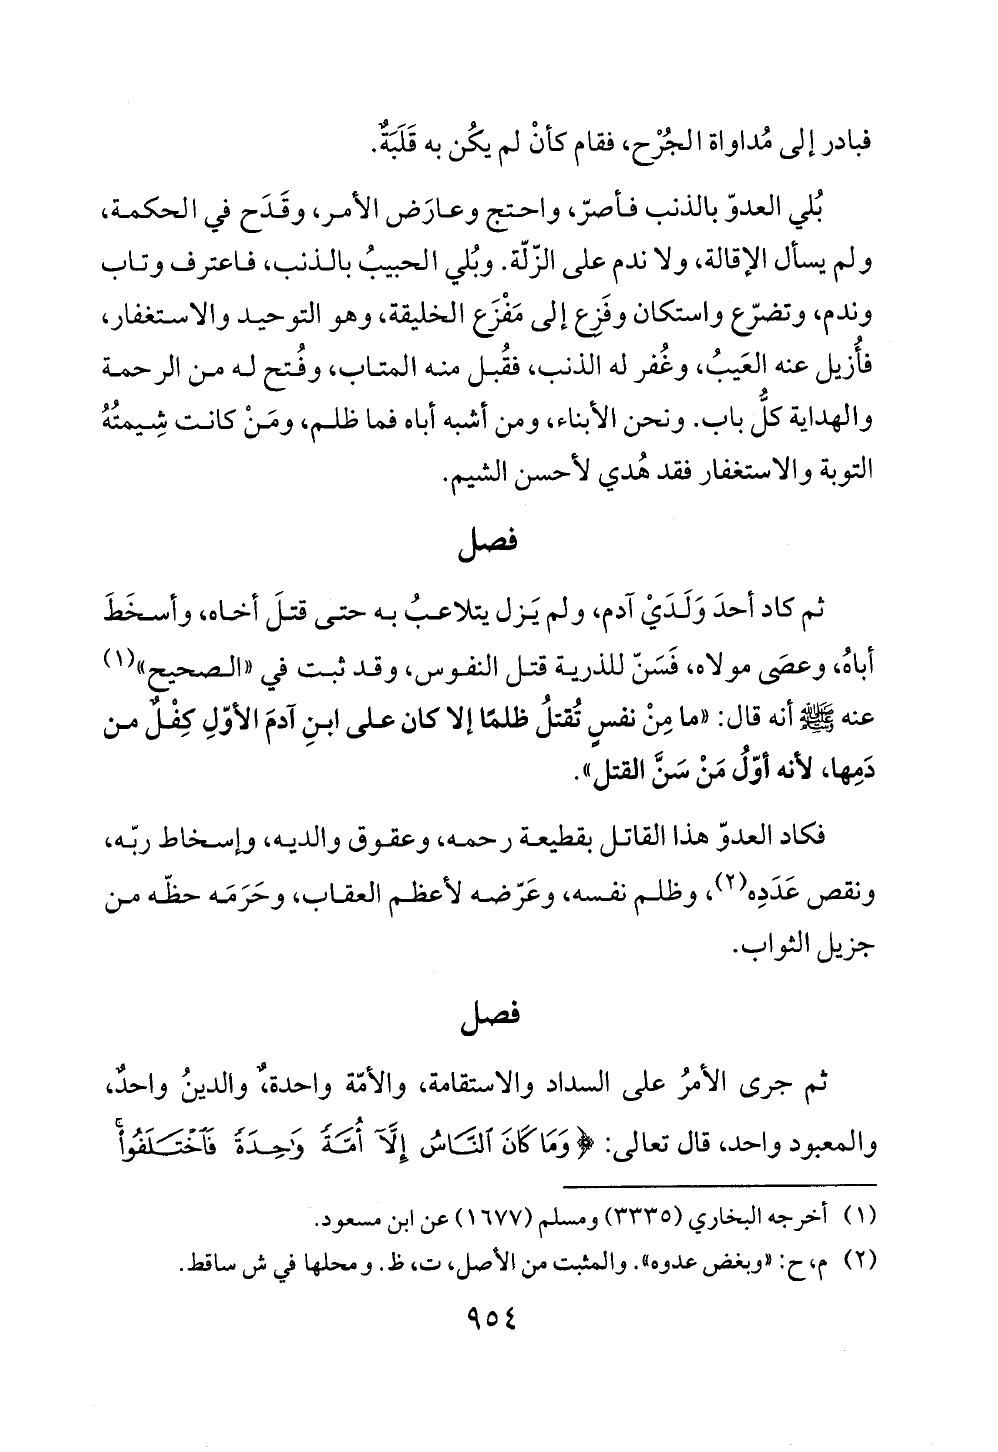 فبادر إلى مُداواة الجُرْح، فقام كأنْ لم يكُن به قَلَبَةٌ.
بُلي العدوّ بالذنب فأصرّ، واحتج وعارَض الأمر، وقَدَح في الحكمة،
ولم يسأل الإقالة، ولا ندم على الزّلّة. وبُلي الحبيبُ بالذنب، فاعترف وتاب
وندم، وتضرّع واستكان وفَزِع إلى مَفْزَع الخليقة، وهو التوحيد والاستغفار،
فأُزيل عنه العَيبُ، وغُفر له الذنب، فقُبل منه المتاب، وفُتح له من الرحمة
والهداية كلُّ باب. ونحن الأبناء، ومن أشبه أباه فما ظلم، ومَنْ كانت شِيمتُهُ
التوبة والاستغفار فقد هُدي لأحسن الشيم.
فصل
ثم كاد أحدَ وَلَدَيْ آدم، ولم يَزل يتلاعبُ به حتى قتلَ أخاه، وأسخَطَ
أباهُ، وعصَى مولاه، فَسَنّ للذرية قتل النفوس، وقد ثبت في «الصحيح»(١)
عنه ﷺ أنه قال: «ما مِنْ نفسٍ تُقتلُ ظلمًا إلا كان على ابنِ آدمَ الأوّلِ كِفْلٌ من
دَمِها، لأنه أوّلُ مَنْ سَنَّ القتل».
فكاد العدوّ هذا القاتل بقطيعة رحمه، وعقوق والديه، وإسخاط ربّه،
ونقص عَدَدِه(٢)، وظلم نفسه، وعَرّضه لأعظم العقاب، وحَرَمَه حظّه من
جزيل الثواب.
فصل
ثم جرى الأمرُ على السداد والاستقامة، والأمّة واحدةٌ، والدينُ واحدٌ،
والمعبود واحد، قال تعالى: ﴿ وَمَا كَانَ ٱلنَّاسُ إِلَّآ أُمَّةً وَٰحِدَةً فَٱخْتَلَفُواْۚ
(١) أخرجه البخاري (٣٣٣٥) ومسلم (١٦٧٧) عن ابن مسعود.
(٢) م، ح: «وبغض عدوه». والمثبت من الأصل، ت، ظ. ومحلها في ش ساقط.
٩٥٤